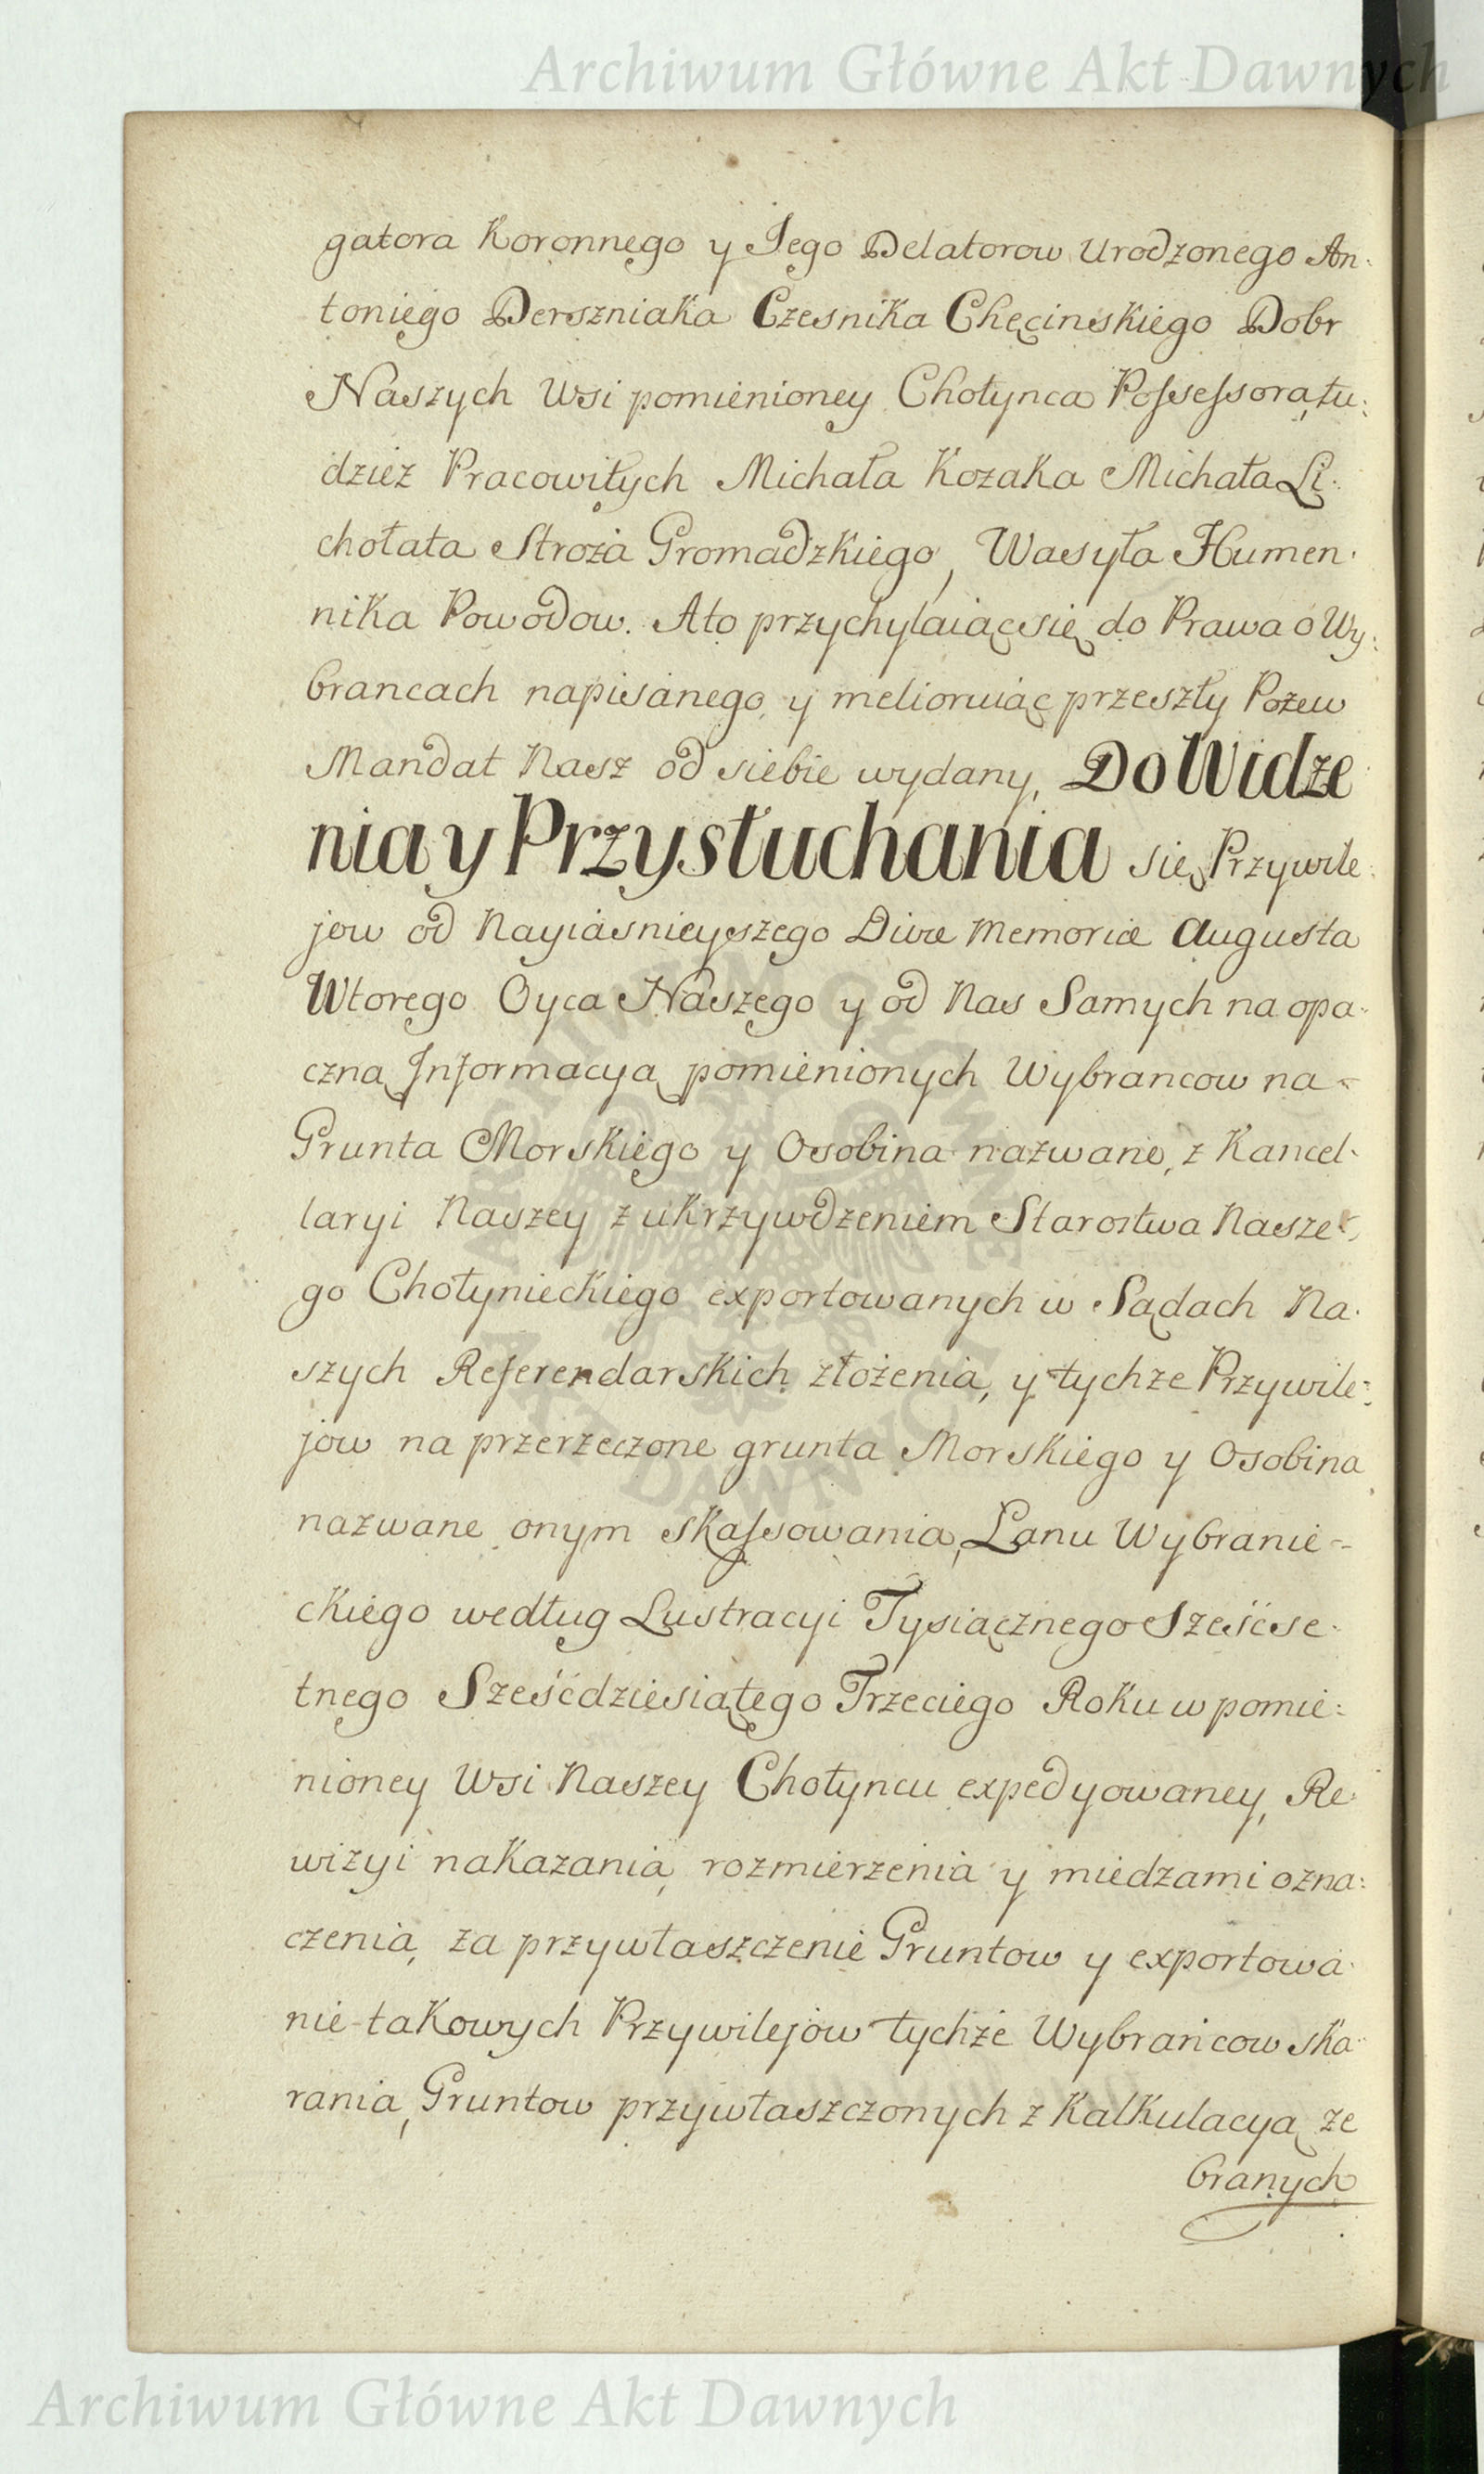 Archiwum Główne Akt Dawnych
gatora Koronnego y Jego Delatorow Urodzonego An-
toniego Derszniaka Czesnika Chęcinskiego Dobr
Naszych Wsi pomienioney Chotynca Possessora, tu-
dziez Pracowitych Michała Kozaka Michała Li-
chotata Stroża Gromadzkiego, Wasyła Humen-
nika Powodow. Ato przychylaiąc się do Prawa o Wy-
brancach napisanego, y melioruiąc przeszły Pozew
Mandat Nasz od siebie wydany, Do Widze
nia y Przysłuchania się Przywile-
jow od Nayiasnieyszego Divæ Memoriæ Augusta
Wtorego Oyca Naszego y od Nas Samych na opa-
czną Informacyą pomienionych Wybrancow na-
Grunta Morskiego y Osobina nazwane, z Kancel-
laryi Naszey z ukrzywdzeniem Starostwa Nasze-
go Chotynieckiego exportowanych w Sądach Na-
szych Referendarskich złożenia, y tychze Przywile-
jow na przerzeczone grunta Morskiego y Osobina
nazwane onym skassowania, Lanu Wybranie-
ckiego według Lustracyi Tysiącznego Sześćse-
tnego Sześćdziesiątego Trzeciego Roku w pomie-
nioney Wsi Naszey Chotyncu expedyowaney, Re-
wizyi nakazania, rozmierzenia y miedzami ozna-
czenia, za przywłaszczenie Gruntow y exportowa-
nie takowych Przywilejow tychże Wybrańcow ska-
rania, Gruntow przywłaszczonych z Kalkulacyą ze
branych
ARCHIWUM GŁÓWNE
AKT DAWNYCH
Archiwum Główne Akt Dawnych